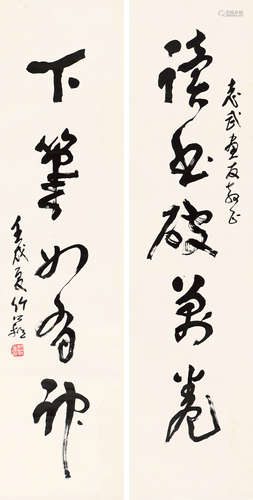 志武画友教正
讀书破萬卷
下筆如有神
壬戌夏竹